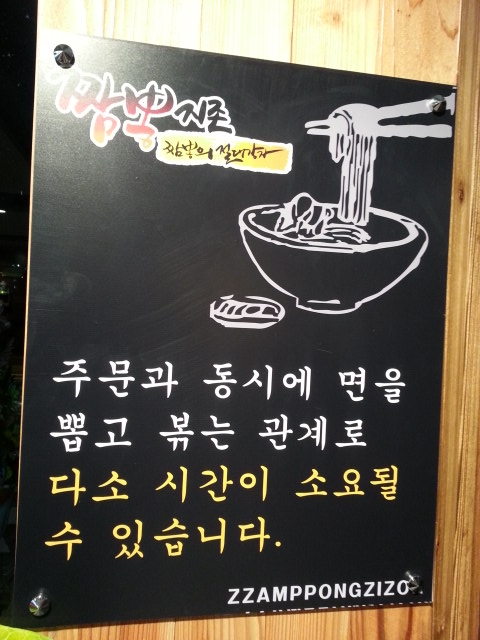 짬뽕지존
짬뽕의 절대강자
주문과 동시에 면을
뽑고 볶는 관계로
다소 시간이 소요될
수 있습니다.
ZZAMPPONGZIZO